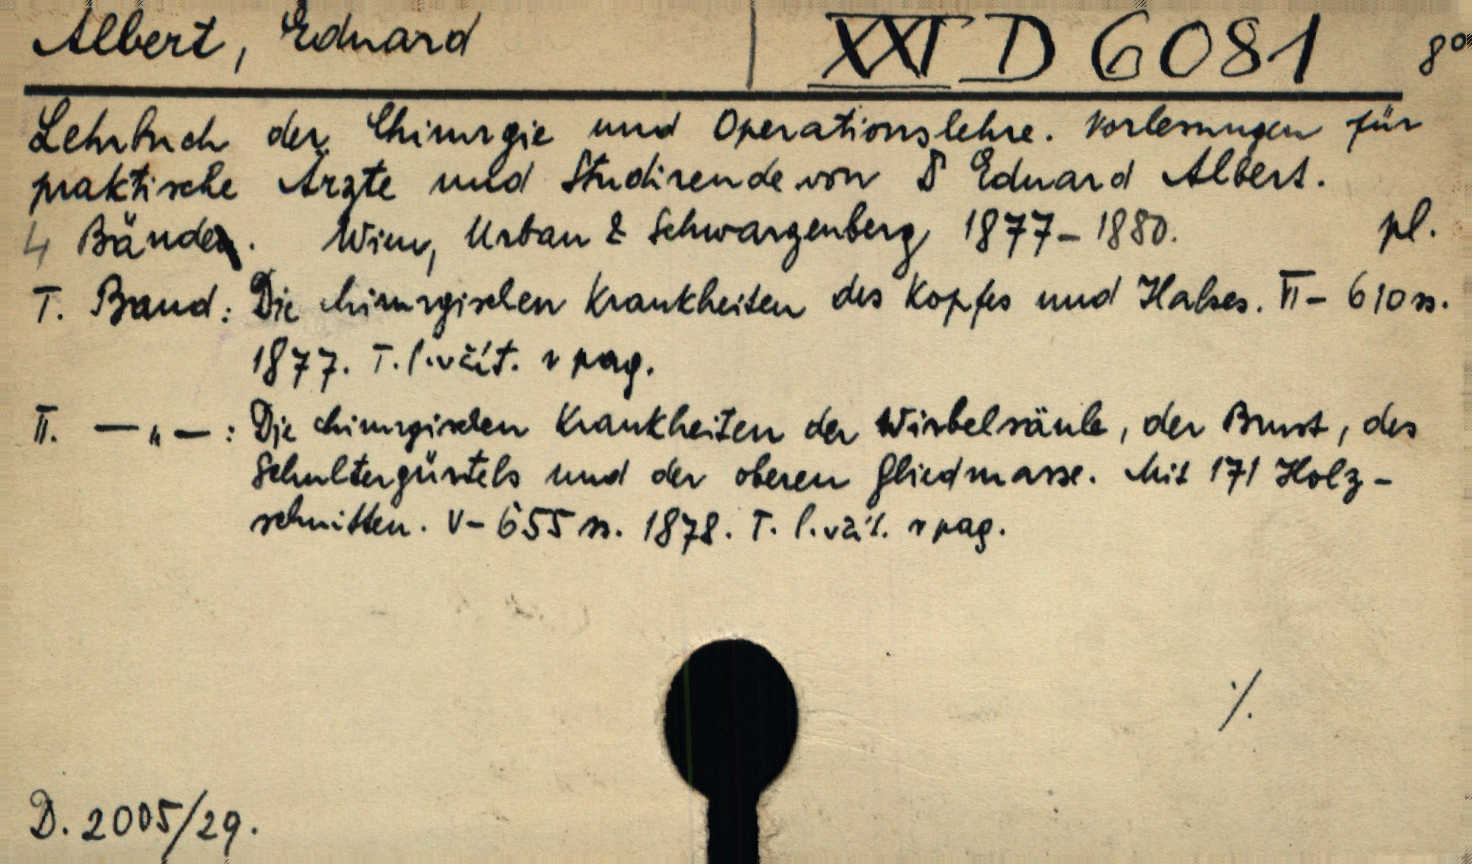 Albert, Eduard XXI D 6081 8°
Lehrbuch der Chirurgie und Operationslehre. Vorlesungen für
praktische Ärzte und Studirende von Dr Eduard Albert.
4 Bände. Wien, Urban & Schwarzenberg 1877-1880. pl.
I. Band: Die chirurgischen Krankheiten des Kopfes und Halses. VI- 610 ss.
1877. T. l. včít. v pag.
II. — „ — : Die chirurgischen Krankheiten der Wirbelsäule, der Brust, des
Schultergürtels und der oberen Gliedmasse. Mit 171 Holz-
schnitten. V- 655 ss. 1878. T. l. včít. v pag.
./.
D. 2005/29.